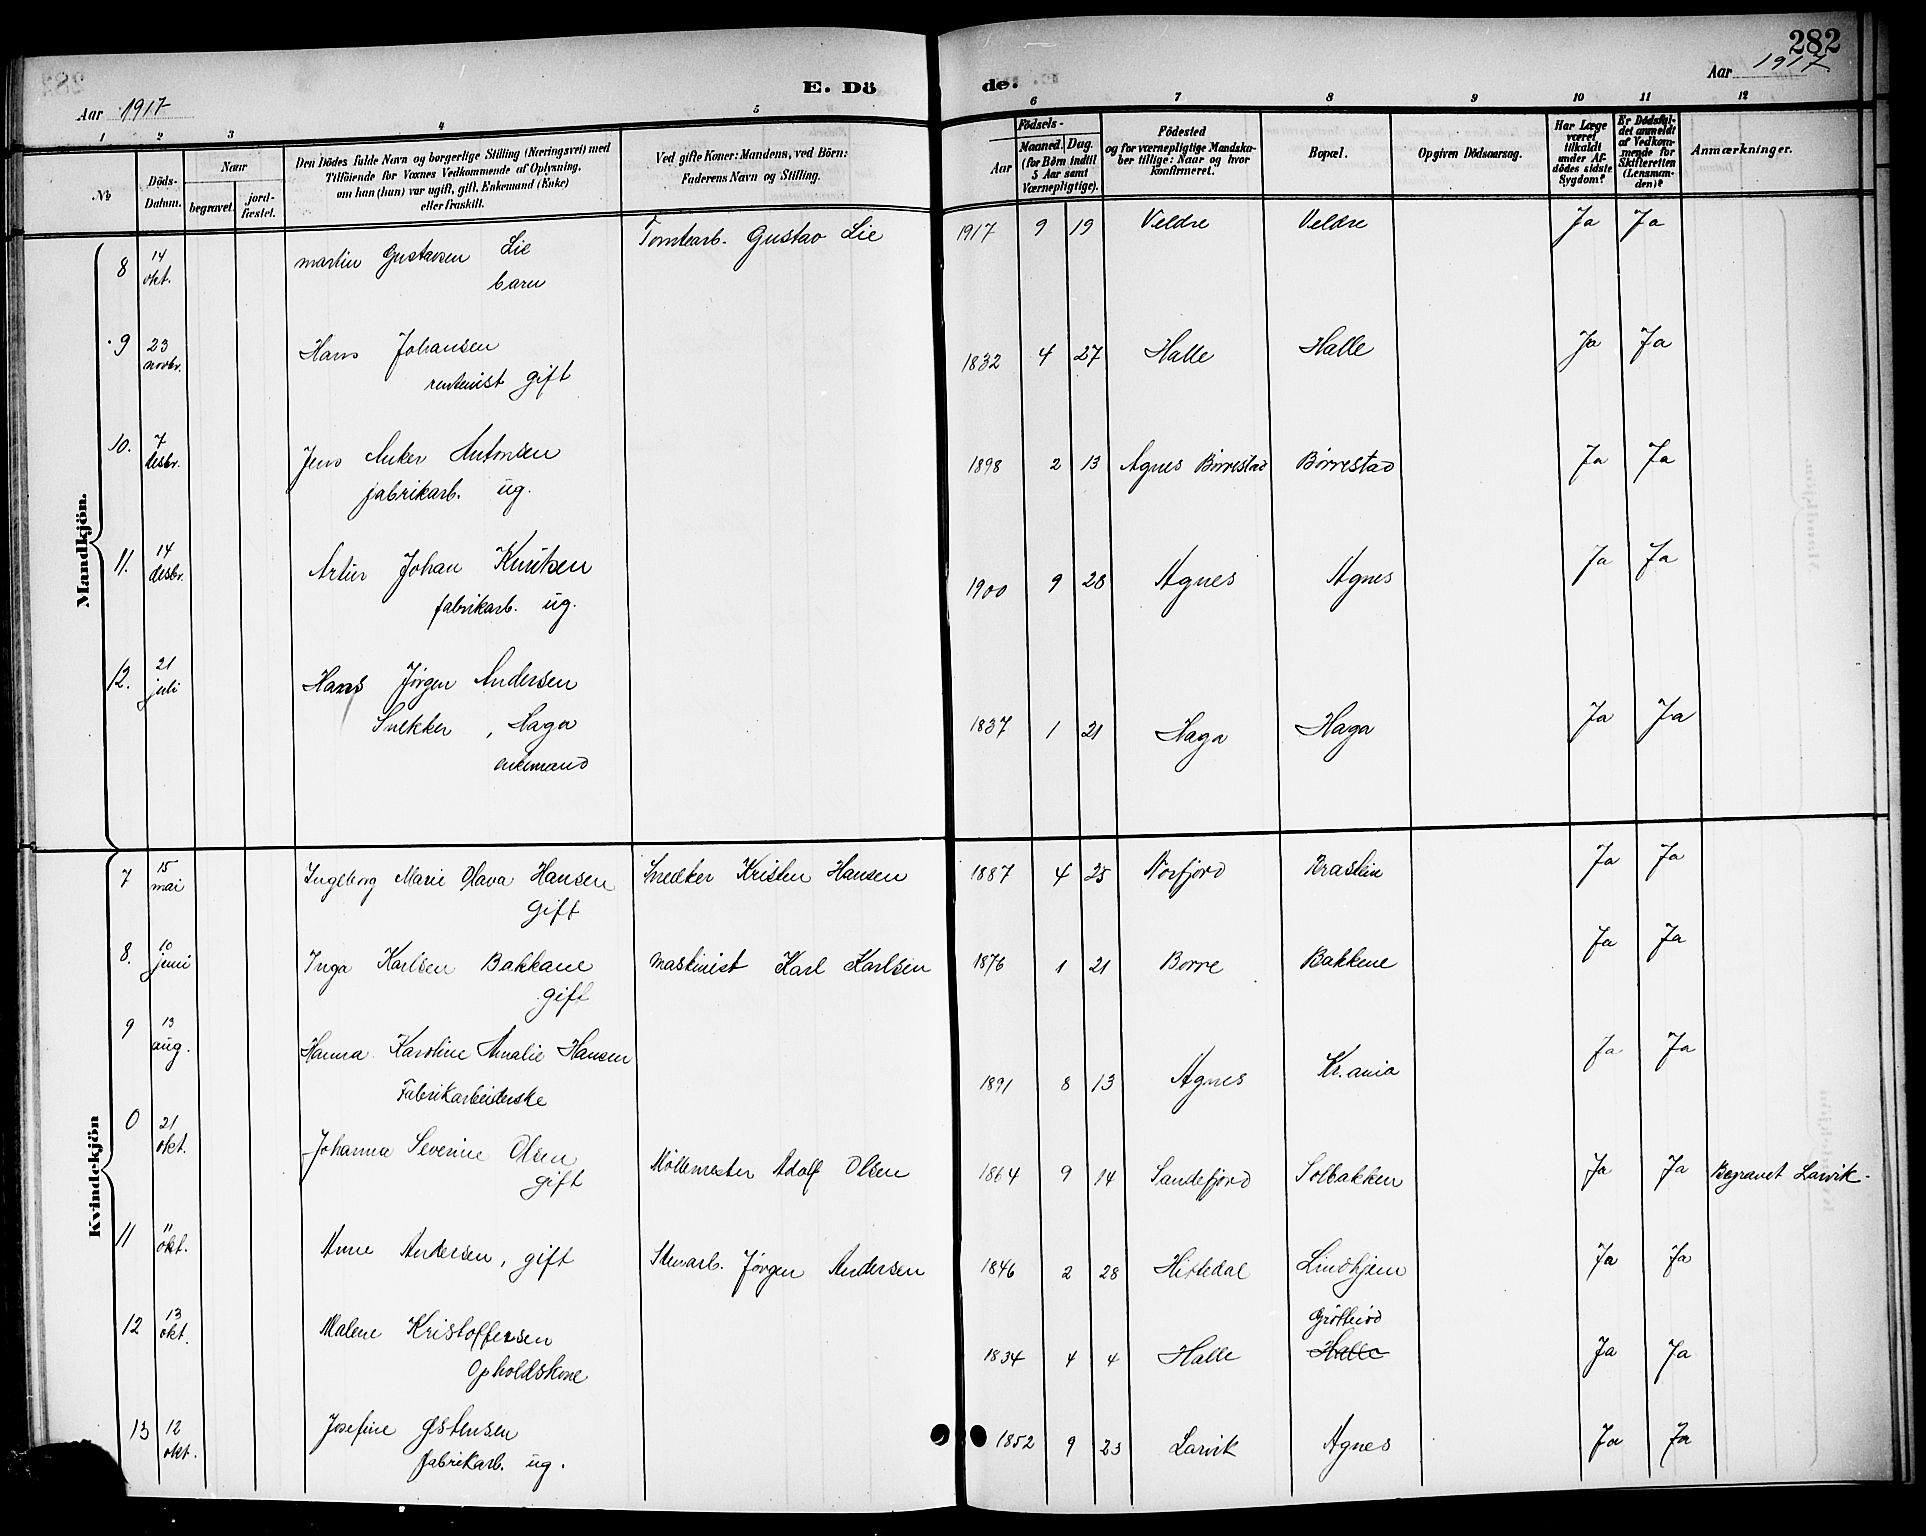 282
Aar 1917
E. Dö
de.
Aar 1917
1 2 3 4 5 6 7 8 9 10 11 12
No
Döds-Datum.
Naar
begravet.
jord-fæstet.
Den Dödes fulde Navn og borgerlige Stilling (Næringsvei) med
Tilföiende for Voxnes Vedkommende af Oplysning,
om han (hun) var ugift, gift, Enkemand (Enke)
eller fraskilt.
Ved gifte Koner: Mandens, ved Börn:
Faderens Navn og Stilling.
Födsels-
Aar
Maaned. Dag.
(for Börn indtil
5 Aar samt
Værnepligtige).
Födested
og for værnepligtige Mandska-
ber tillige: Naar og hvor
konfirmeret.
Bopæl.
Opgiven Dödsaarsag.
Har Læge
været
tilkaldt
under Af-
dödes sidste
Sygdom?
Er Dödsfal-
det anmeldt
af Vedkom-
mende for
Skifteretten
(Lensman-
den)?
Anmærkninger.
Mandkjön.
8 14 okt. Martin Gustavsen Lie Tomtearb. Gustav Lie 1917 9 19 Veldre Veldre Ja Ja
barn
9 23 novbr. Hans Johansen 1832 4 27 Halle Halle Ja Ja
rentenist gift
10. 7 desbr. Jens Anker Antonsen 1898 2 13 Agnes Børrestad Børrestad Ja Ja
fabrikarb. ug.
11. 14 desbr. Artur Johan Knutsen 1900 9 28 Agnes Agnes Ja Ja
fabrikarb. ug.
12. 21 juli Hans Jørgen Andersen
Snekker, Haga 1837 1 21 Haga Haga Ja Ja
enkemand
Kvindekjön
7 15 mai Ingeborg Marie Olava Hansen Snedker Kristen Hansen 1887 4 25 Norfjord Ja Ja
gift
8. 10 juni Inga Karlsen Bakkane maskinist Karl Karlsen 1876 1 21 Borre Bakkene Ja Ja
gift
9 13 aug. Hanna Karoline Amalie Hansen 1891 8 13 Agnes Kr.ania Ja Ja
Fabrikarbeiderske
0 21 okt. Johanna Severine Olsen Møllemester Adolf Olsen 1864 9 14 Sandefjord Solbakken Ja Ja Begravet Larvik.
gift
11 11 okt. Anne Andersen, gift Stenarb. Jørgen Andersen 1846 2 28 Hittedal Lindhjem Ja Ja
12 13 okt. Malene Kristoffersen 1834 4 4 Halle Grøtterød Halle Ja Ja
Opholdskone
13 12 okt. Josefine Østensen 1852 9 23 Larvik Agnes Ja Ja
fabrikarb. ug.